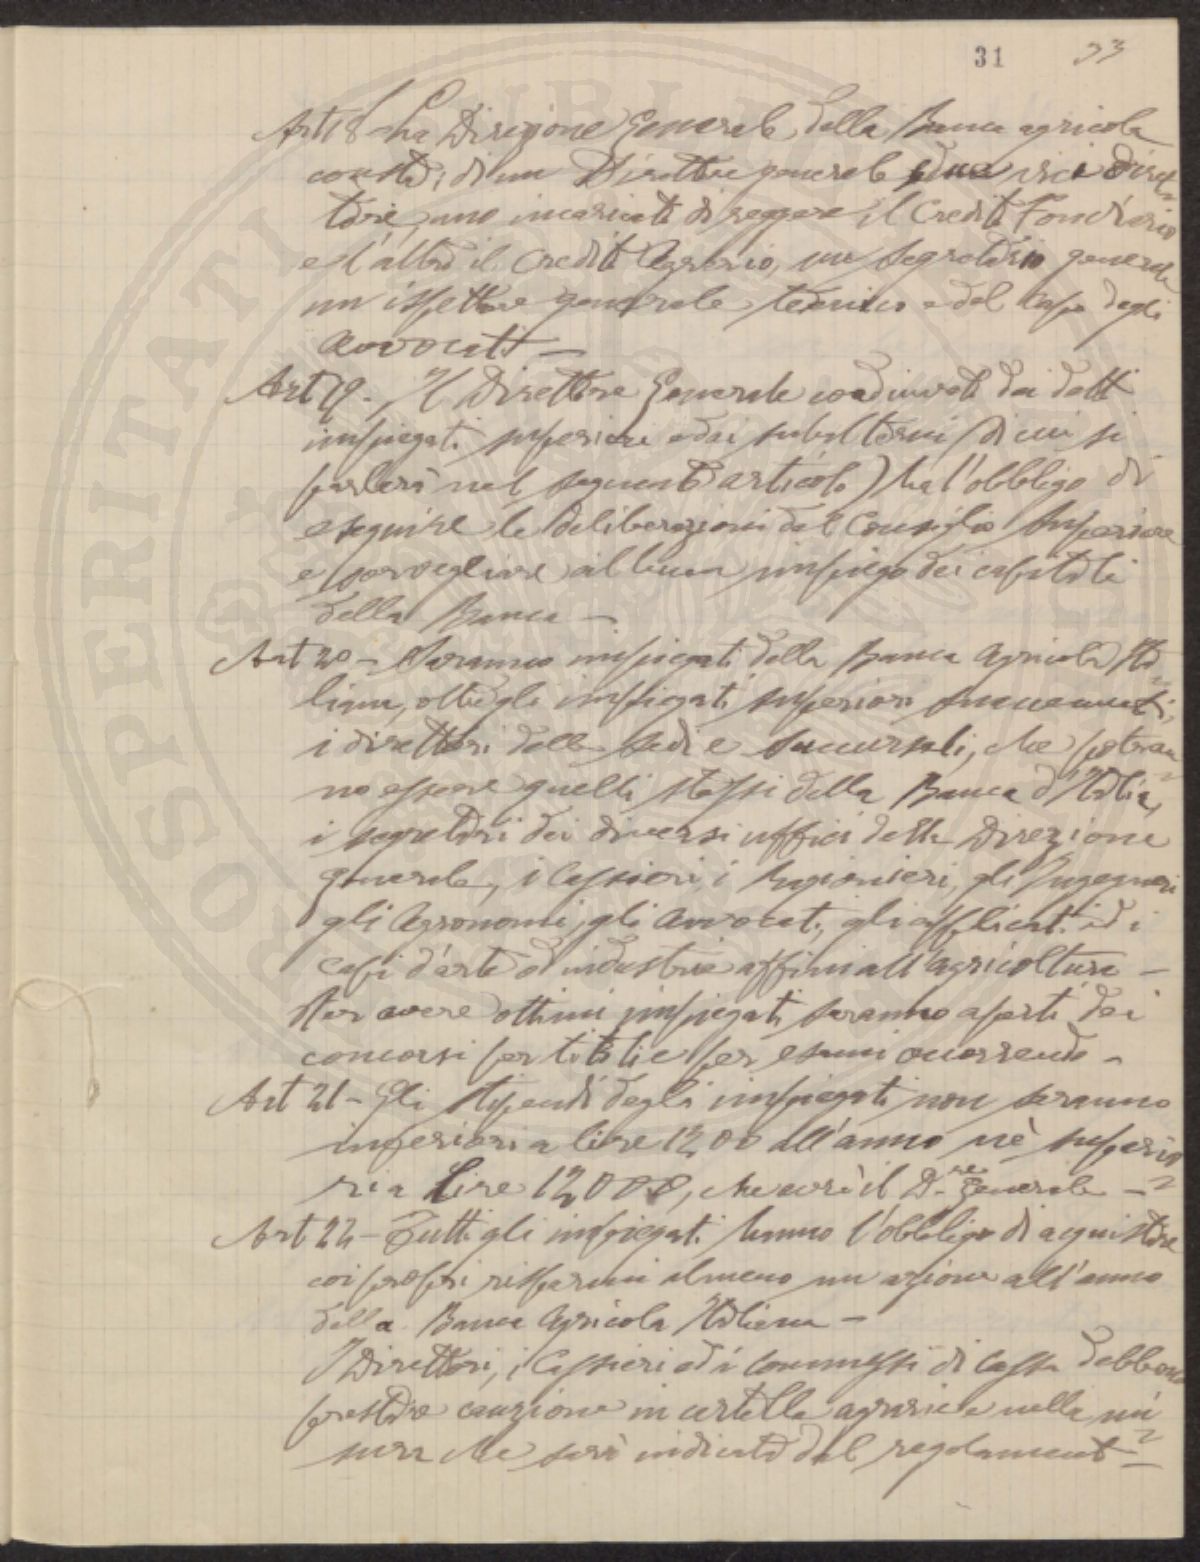 31 33
Art 18 - La Direzione Generale della Banca agricola
consta: di un Direttore generale, due vici diret-
tori, uno incaricato di reggere il Credito Fondiario
e l'altro il Credito Agrario, un segretario generale
un ispettore generale tecnico e del Capo degli
avvocati —
Art 19 - Il Direttore Generale coadiuvato dai detti
impiegati superiori e dai subalterni (di cui si
parlerà nel seguente articolo) ha l'obbligo di
eseguire le deliberazioni del Consiglio Superiore
e sorvegliare al buon impiego dei capitali
della Banca —
Art 20 - Saranno impiegati della Banca Agricola Ita-
liana, oltre gli impiegati superiori
i direttori delle sedi e succursali, che potran-
no essere quelli stessi della Banca d'Italia,
i segretari dei diversi uffici della Direzione
generale, i Cassieri, i Ragionieri, gli Ingegneri
gli Agronomi, gli avvocati, gli applicati ed i
capi d'arte o d'industrie affini all'agricoltura —
Per avere ottimi impiegati saranno aperti dei
concorsi per titoli e per esami occorrendo —
Art 21 - Gli stipendi degli impiegati non saranno
inferiori a lire 1200 all'anno nè superio-
ri a Lire 12000, che avrà il D.re Generale —
Art 22 - Tutti gli impiegati hanno l'obbligo di acquistare
coi propri risparmi almeno un azione all'anno
della Banca Agricola Italiana —
I Direttori, i Cassieri ed i commessi di Cassa debbono
prestare cauzione in cartelle agrarie nella mi-
sura che sarà indicata dal regolamento —
PROSPERITATI PUBLICAE